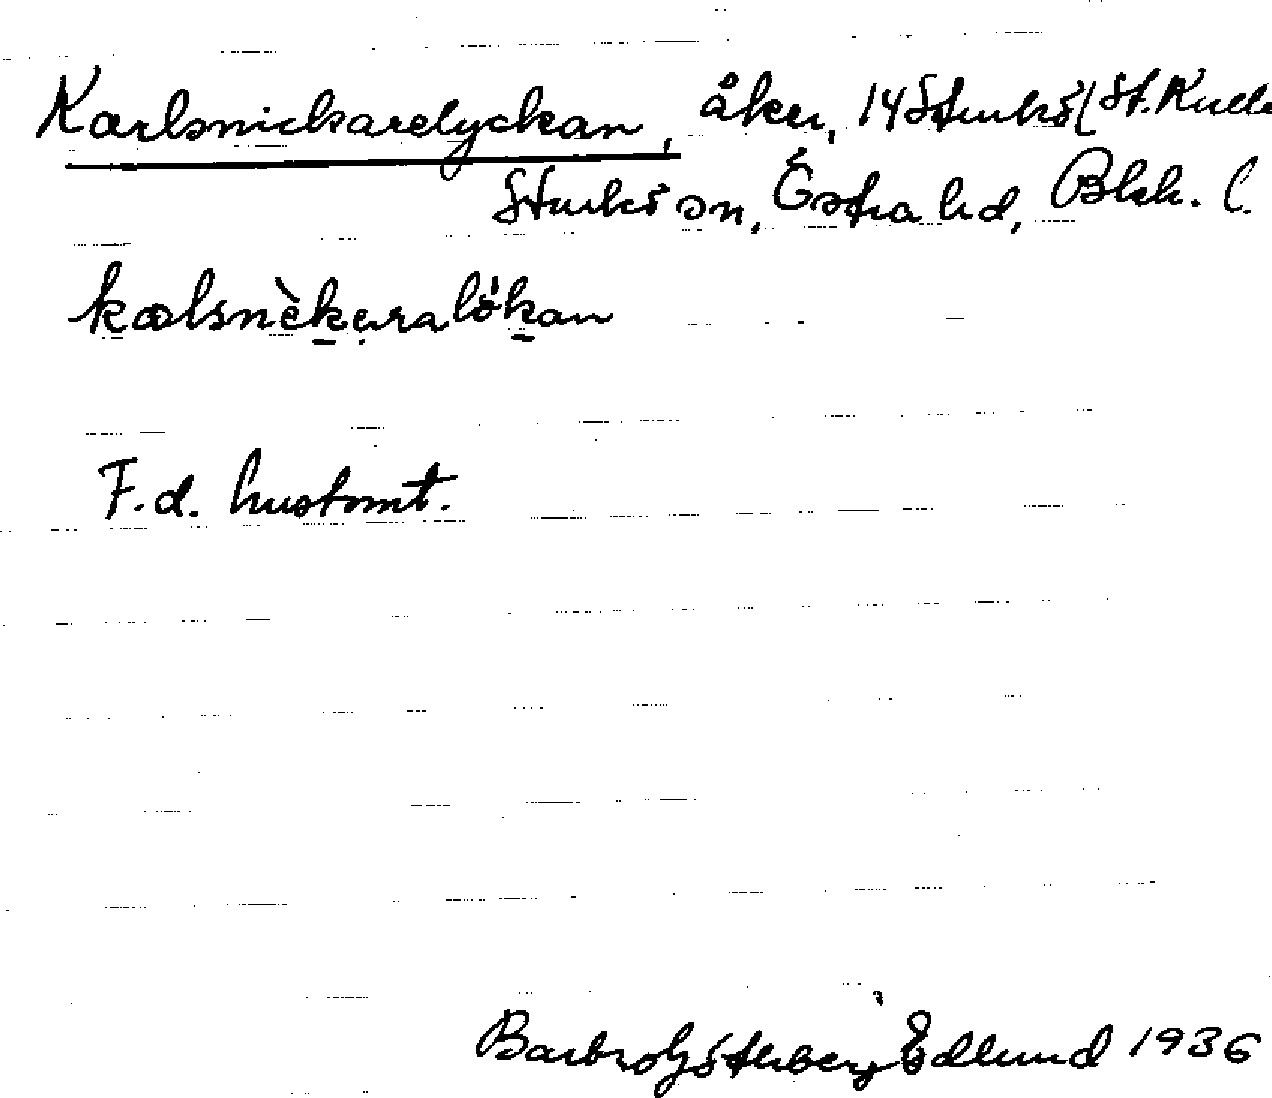 Karlsnickarelyckan, åker, 14 Sturkö (St. Rude
Sturkö sn, Östra hd, Blek. l.
kalsnèkara lökan
F.d. hustomt.
Barbro Götherberg Edlund 1936